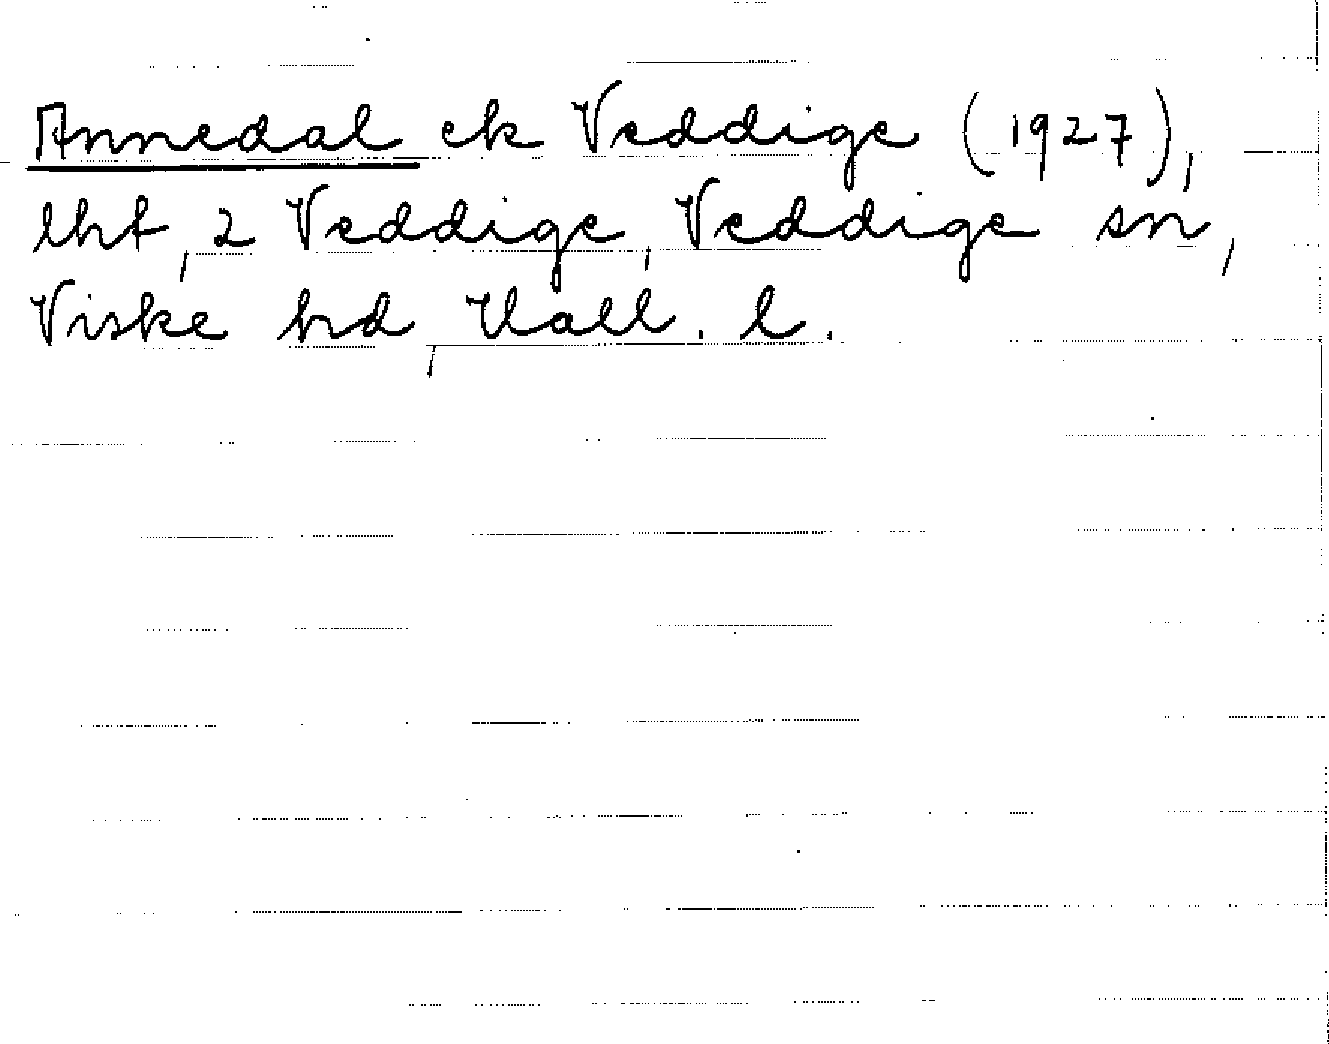 Annedal ek Veddige (1927),
lht, 2 Veddige, Veddige sn,
Viske hd, Hall. l.